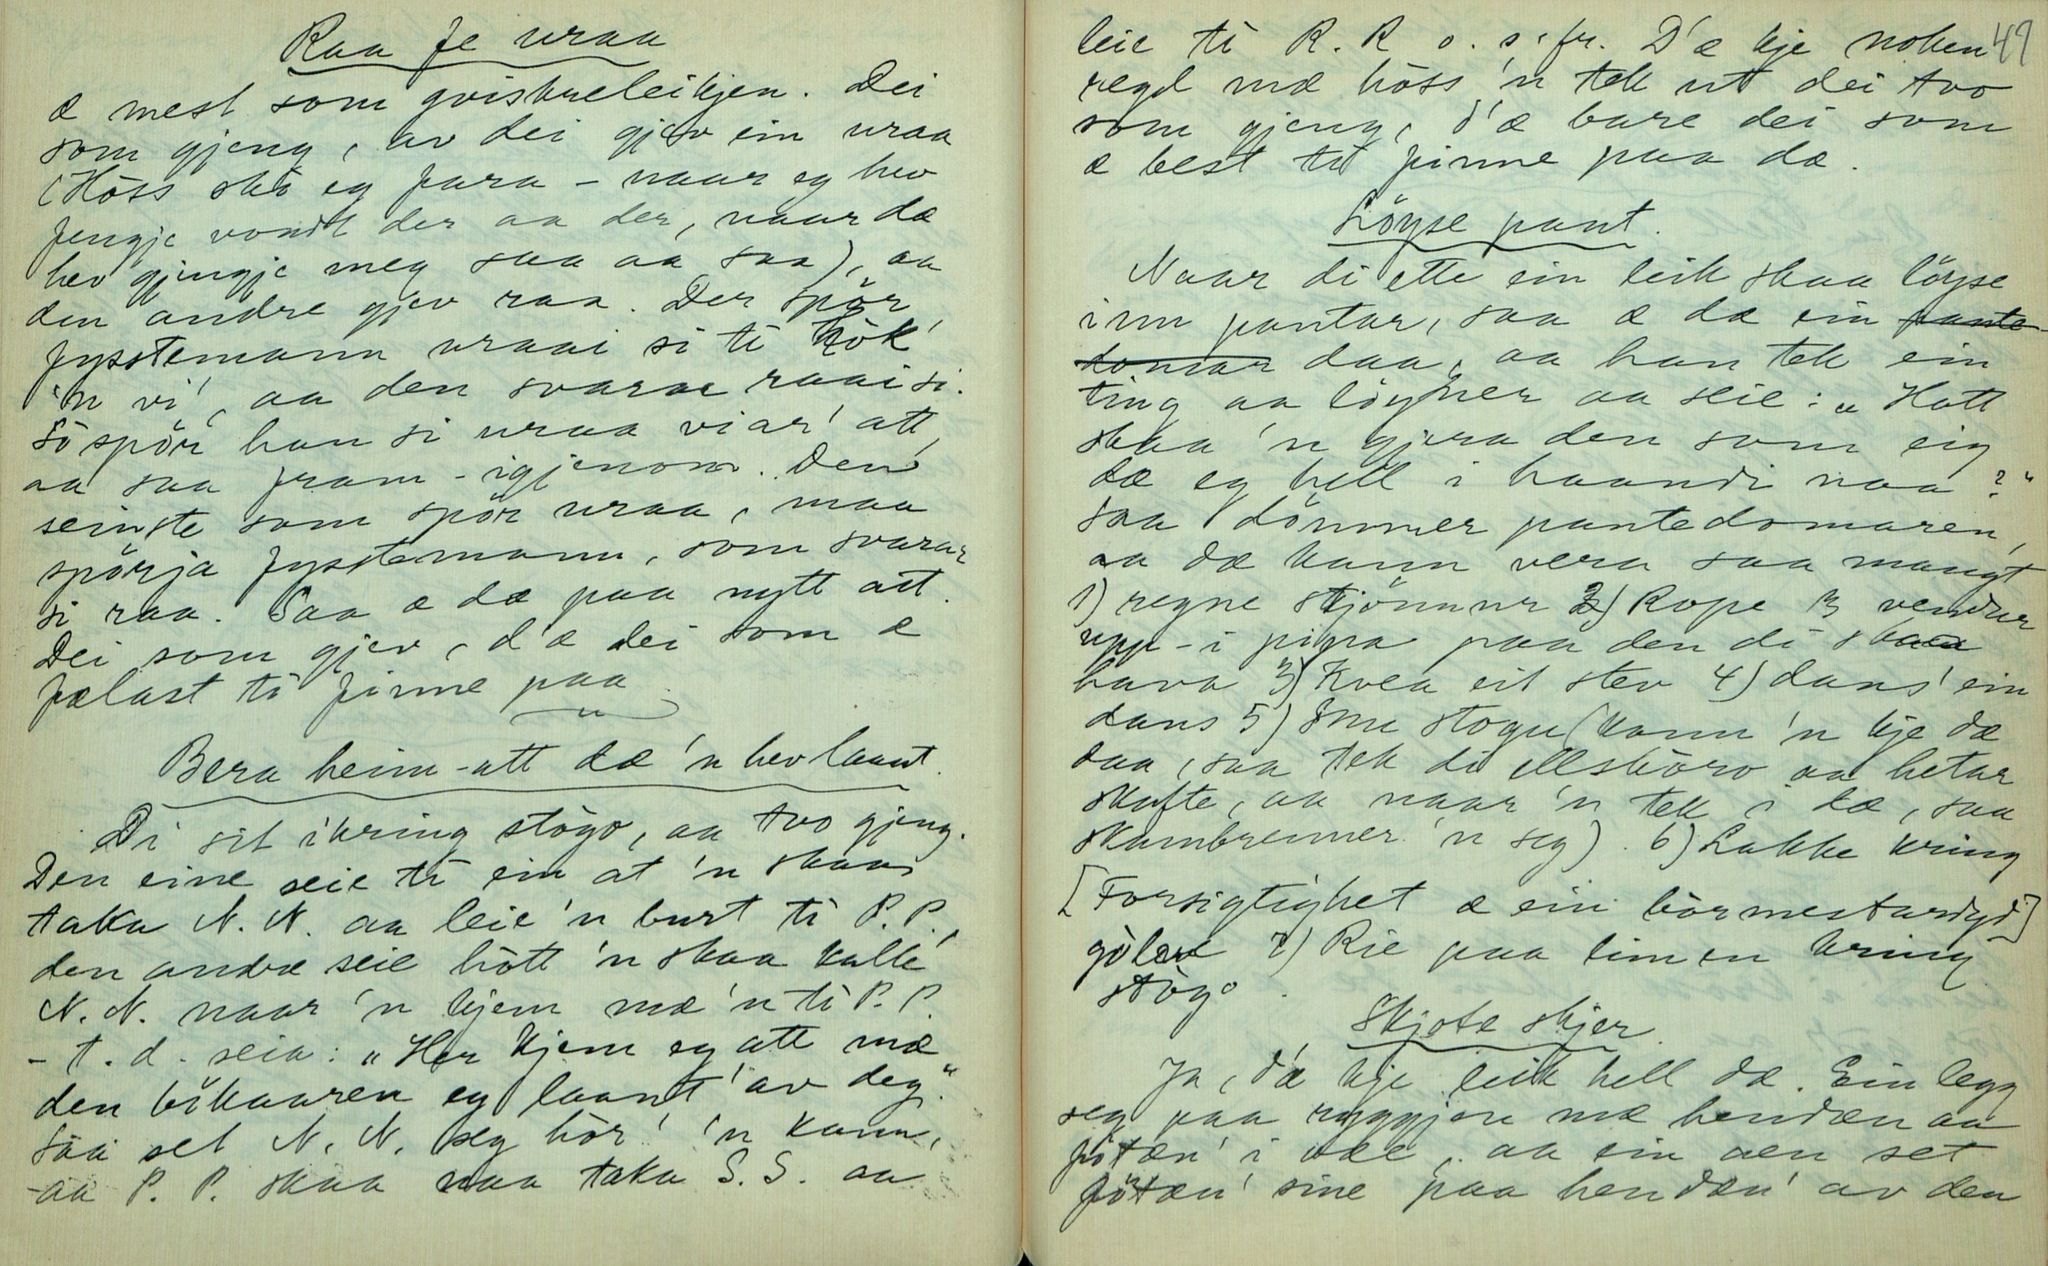 Raa fe uraa
æ mest som gviskreleikjen. Dei
som gjeng, av dei gjev ein uraa
(Höss ska eg fara - naar eg hev
fengje vondt der aa der, naar dæ
hev gjengje meg saa aa saa), aa
den andre gjev raa. Der spör
fysstemann uraai si ti hök
'n vi', aa den svarar raai si.
Só spör han si uraa viar' att,
aa saa fram-igjenom. Den
seinste som spör uraa, maa
spörja fysstemann, som svarar
si raa. Saa æ dæ paa nytt att.
Dei som gjev, d'æ dei som æ
fælast ti finne paa.
Bera heim-att dæ 'n hev laant.
Di sit ikring stògo, aa tvo gjeng.
Den eine seie ti ein at 'n skaa
taka N. N. aa leie 'n burt ti P. P.,
den andre seie hòtt 'n skaa kalle
N. N. naar 'n kjem mæ 'n ti P. P.
- t. d. seia: "Her kjem eg att mæ
den bikaaren eg laant' av deg."
Saa set N. N. seg hòr' 'n kann,
aa P. P. skaa naa taka S. S. aa
49
leie ti R. R o. s. fr. D'æ kje noken
regel mæ höss 'n tek ut dei tvo
som gjeng, d'æ bare dei som
æ best ti finne paa dæ.
Löyse pant.
Naar di ette ein leik skaa löyse
inn pantar, saa æ dæ ein pante-
domar daa, aa han tek ein
ting aa löyner aa seie: "Hott
skaa 'n gjera den som eig
dæ eg hell i haandi naa?"
Saa dömmer pantedomaren,
aa dæ kann vera saa mangt
1) regne stjönnur 2) Rope 3 vendur
upp-i pipa paa den di skaa
hava 3) Kvea eit stev 4) dans' ein
dans 5) Snu stogu (kann 'n kje dæ
daa, saa tek di ellskòro aa hetar
skafte, aa naar 'n tek i dæ, saa
skambrenner 'n seg). 6) Lakke kring
[Forsigtighet æ ein bòrmestardyd]
gòlve 7) Rie paa limen kring
stògo.
Skjote skjer.
Ja, d'æ kje leik hell dæ. Ein legg
seg paa ryggjen mæ hendæn aa
fötæn' i vêr, aa ein aen set
fötæn' sine paa hendæn' av den